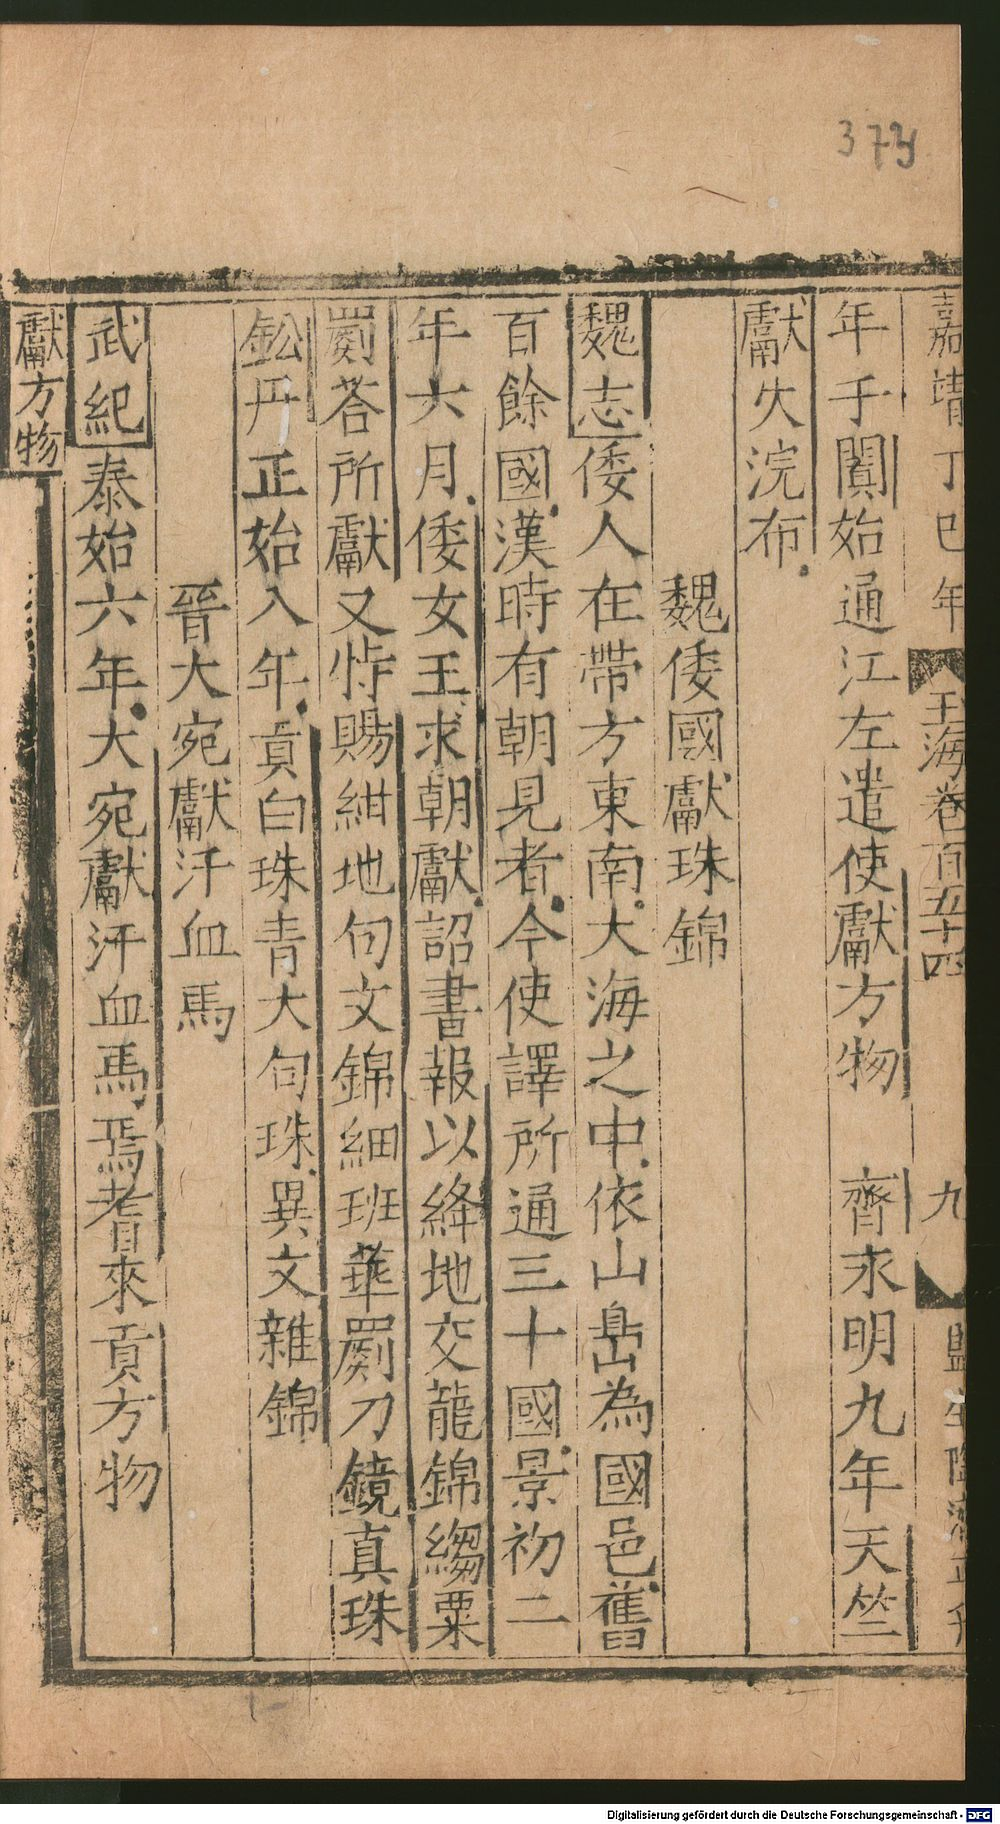 373
嘉靖丁巳年 玉海卷百五十四 九
年于闐始通江左遣使獻方物 齊永明九年天竺
獻火浣布
魏倭國獻珠錦
魏志倭人在帶方東南大海之中依山島為國邑舊
百餘國漢時有朝見者今使譯所通三十國景初二
年六月倭女王求朝獻詔書報以絳地交龍錦縐粟
罽荅所獻又特賜紺地句文錦細班華罽刀鏡真珠
鈆丹正始八年貢白珠青大句珠異文雜錦
晉大宛獻汗血馬
武紀泰始六年大宛獻汗血馬焉耆來貢方物
獻方物
Digitalisierung gefördert durch die Deutsche Forschungsgemeinschaft - DFG